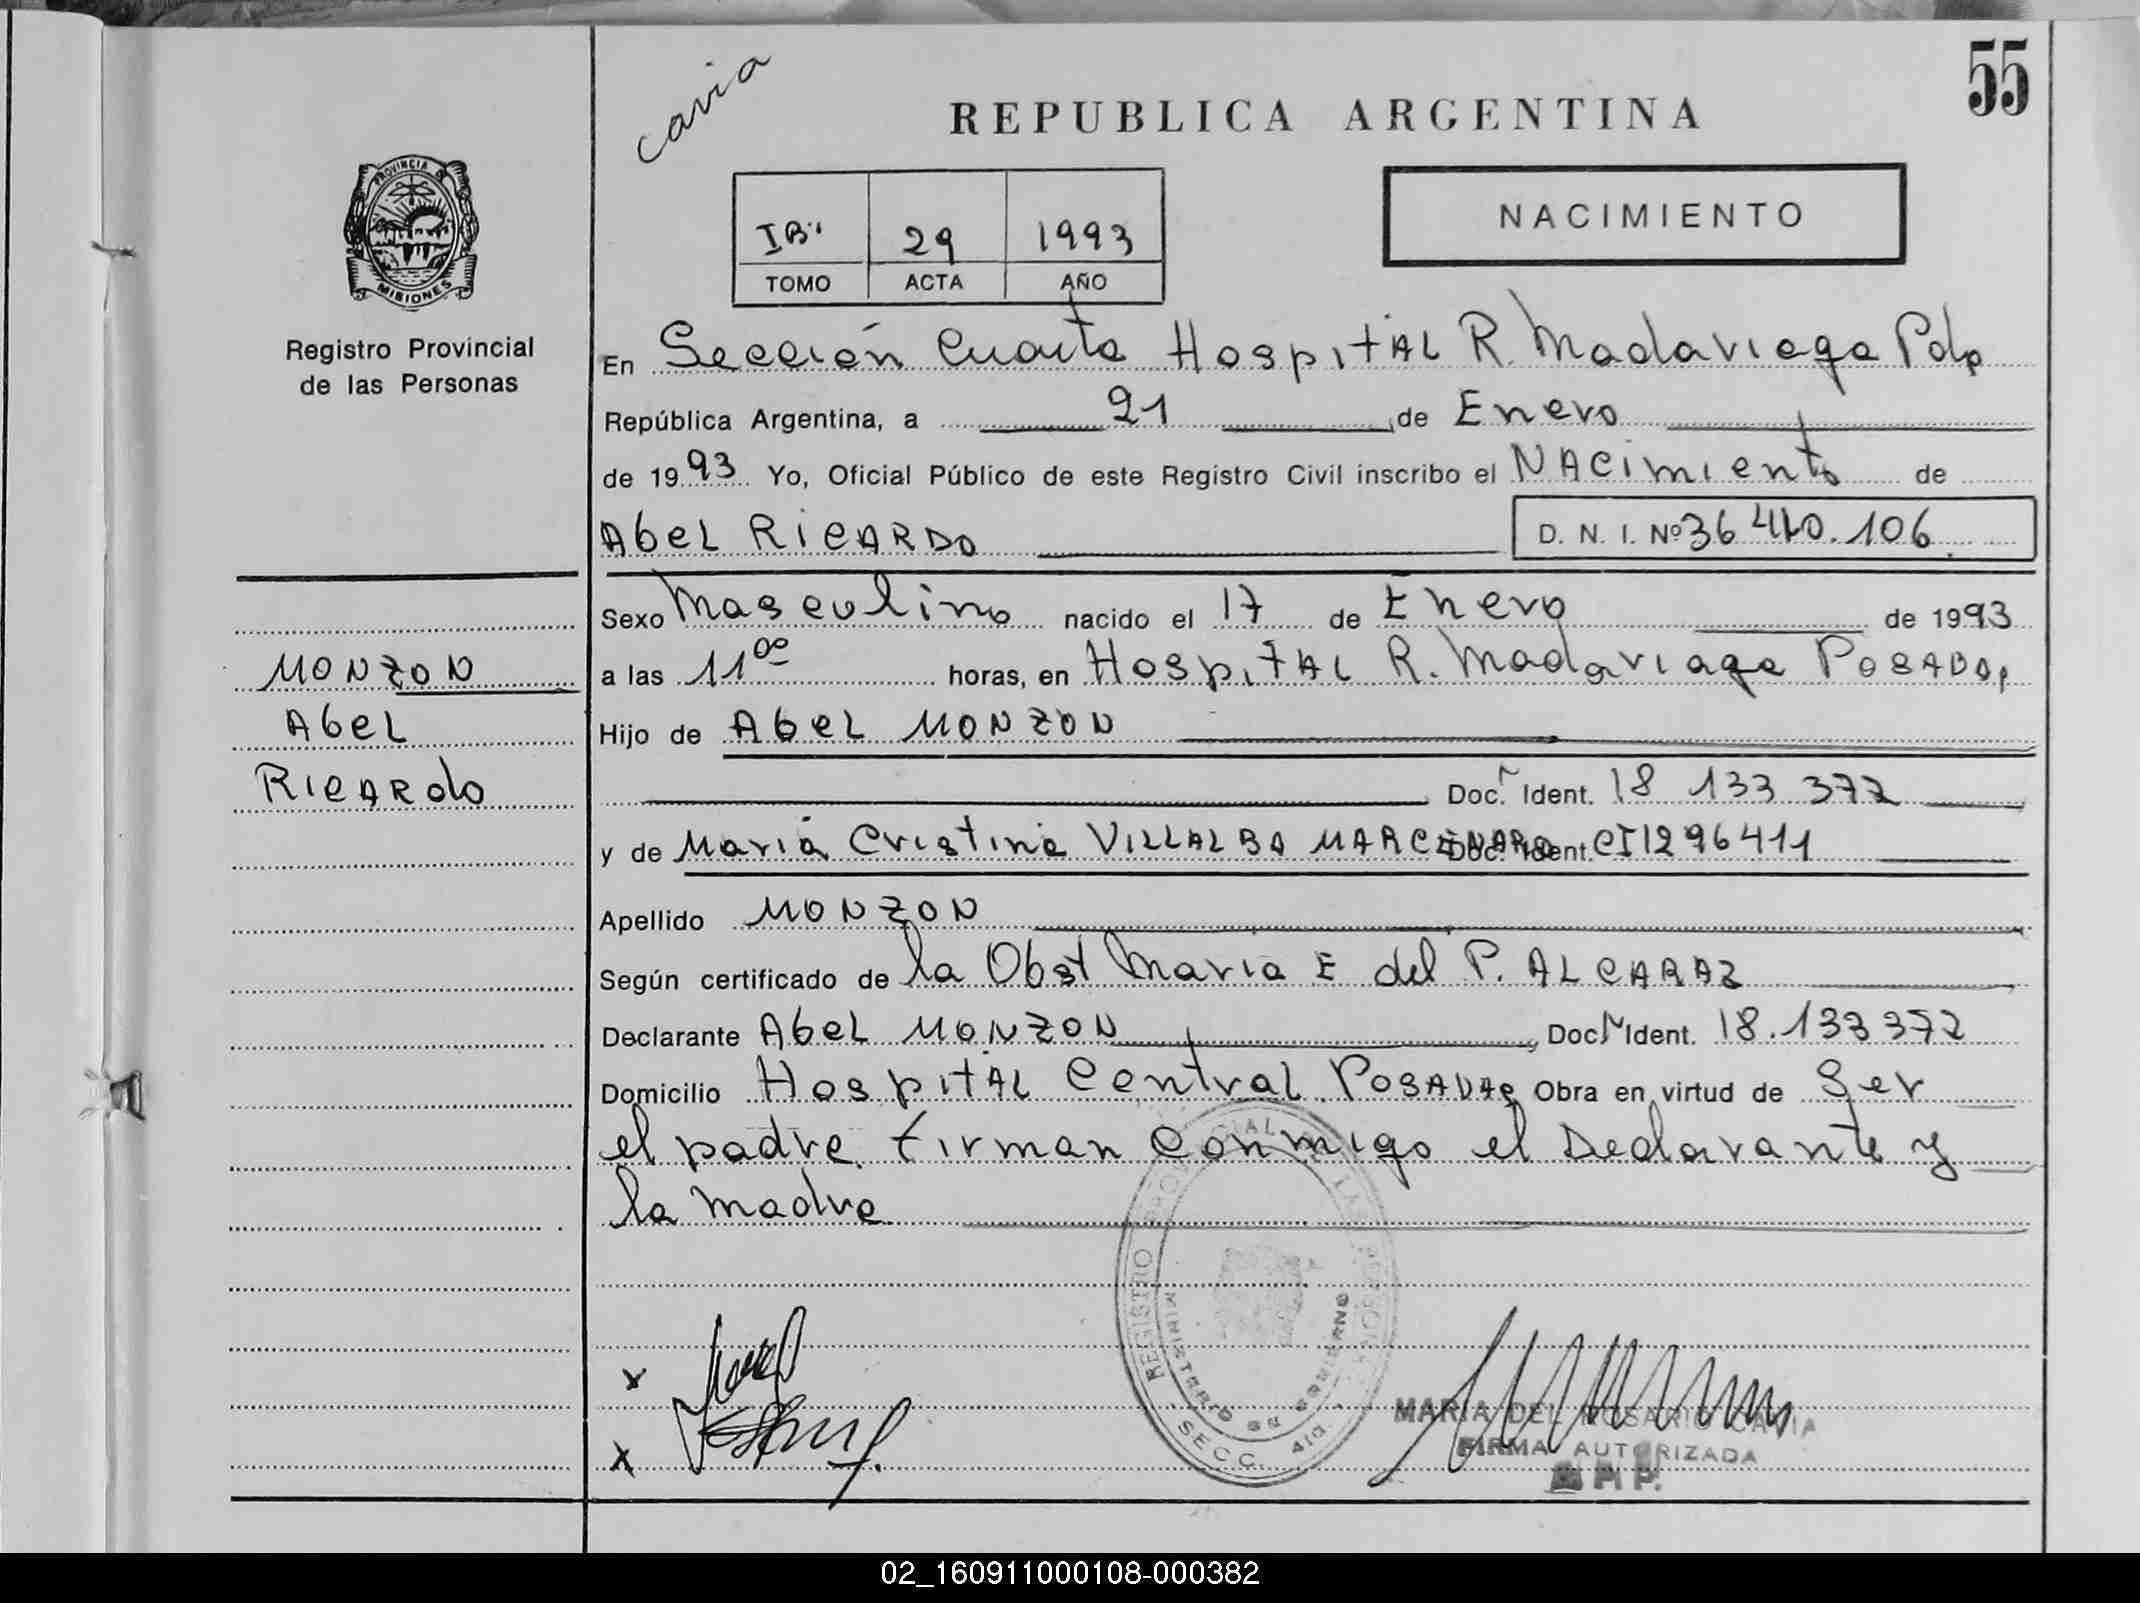 cavia
55
REPUBLICA ARGENTINA
PROVINCIA DE
MISIONES
NACIMIENTO
29 1993
TOMO ACTA AÑO
Registro Provincial
de las Personas
En Sección Cuarta Hospital R. Madariaga Pdas
República Argentina, a 21 de Enero
de 1993 Yo, Oficial Público de este Registro Civil inscribo el NAcimiento de
Abel RicARDO D. N. I. Nº 36.440.106
Sexo Masculino nacido el 17 de Enero de 1993
MONZON
a las 11 00 horas, en HospitAL R. Madariaga POSADAS
Abel
Hijo de Abel MONZON
RicARdo
Doc. Ident. 18 133 372
y de Maria Cristina VILLALBA MARCENARO Doc. Ident. CI 1296411
Apellido MONZON
Según certificado de la Obst Maria E del P. ALCARAZ
Declarante Abel MONZON, Doc. Ident. 18.133 372
Domicilio HospitAL Central POSADAS Obra en virtud de Ser
el padre. firman conmigo el Declarante y
la madre
REGISTRO PROVINCIAL DE LAS PERSONAS
MINISTERIO DE GOBIERNO
SECC. 4ta.
X
X
MARIA DEL ROSARIO CAVIA
FIRMA AUTORIZADA
02_160911000108-000382